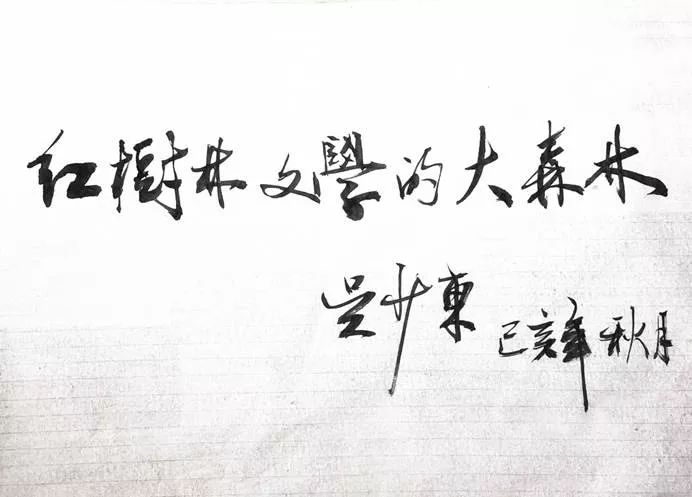 红樹林文學的大森林
吴少東 己亥年秋月